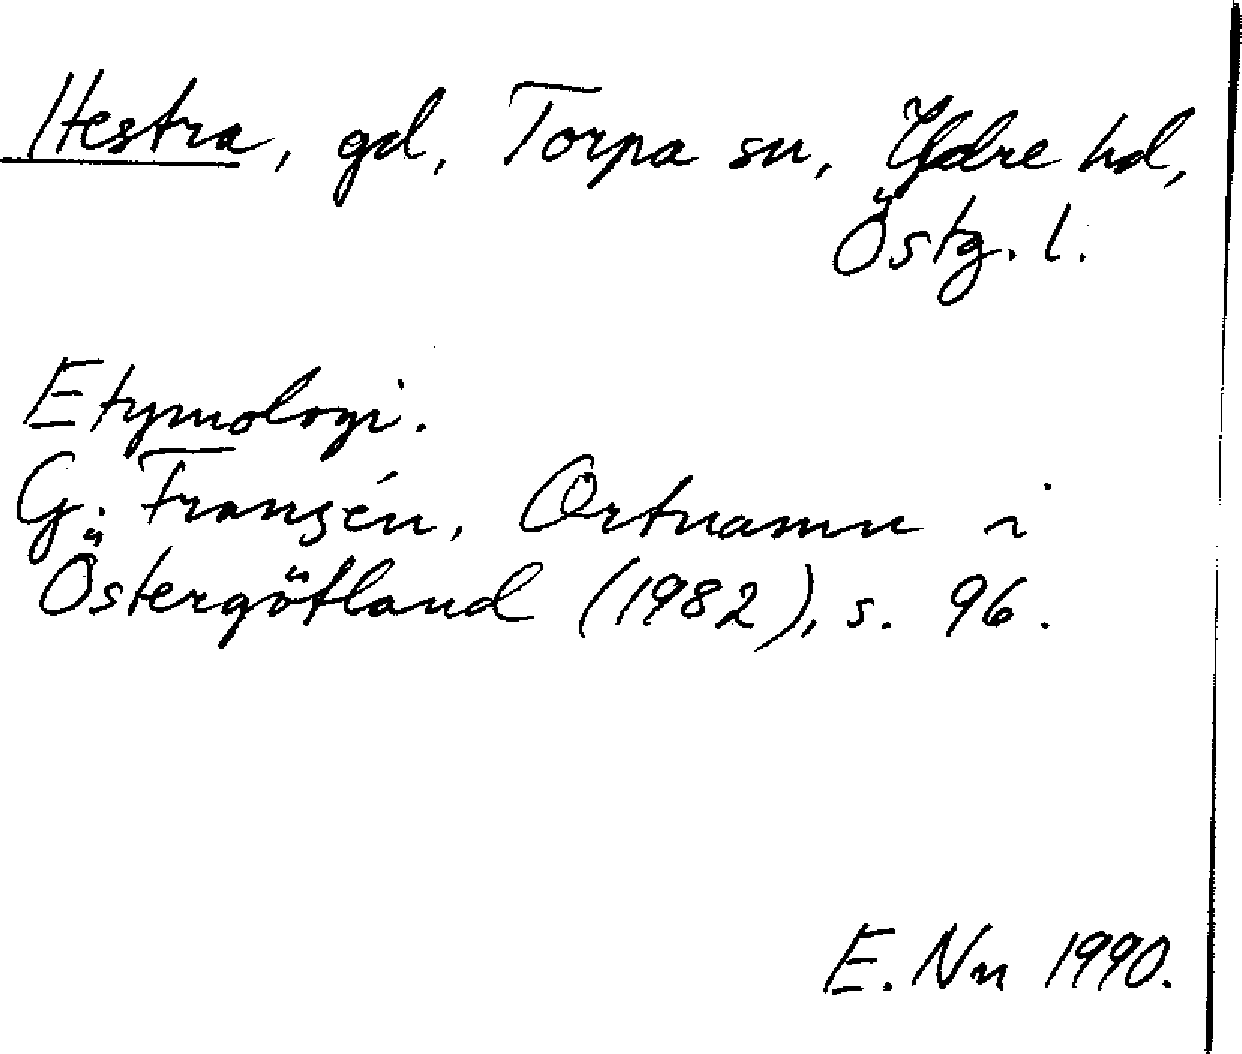 Hestra, gd, Torpa sn, Ydre hd,
Östg. l.
Etymologi.
G. Franzén, Ortnamn i
Östergötland (1982), s. 96.
E. Nn 1990.